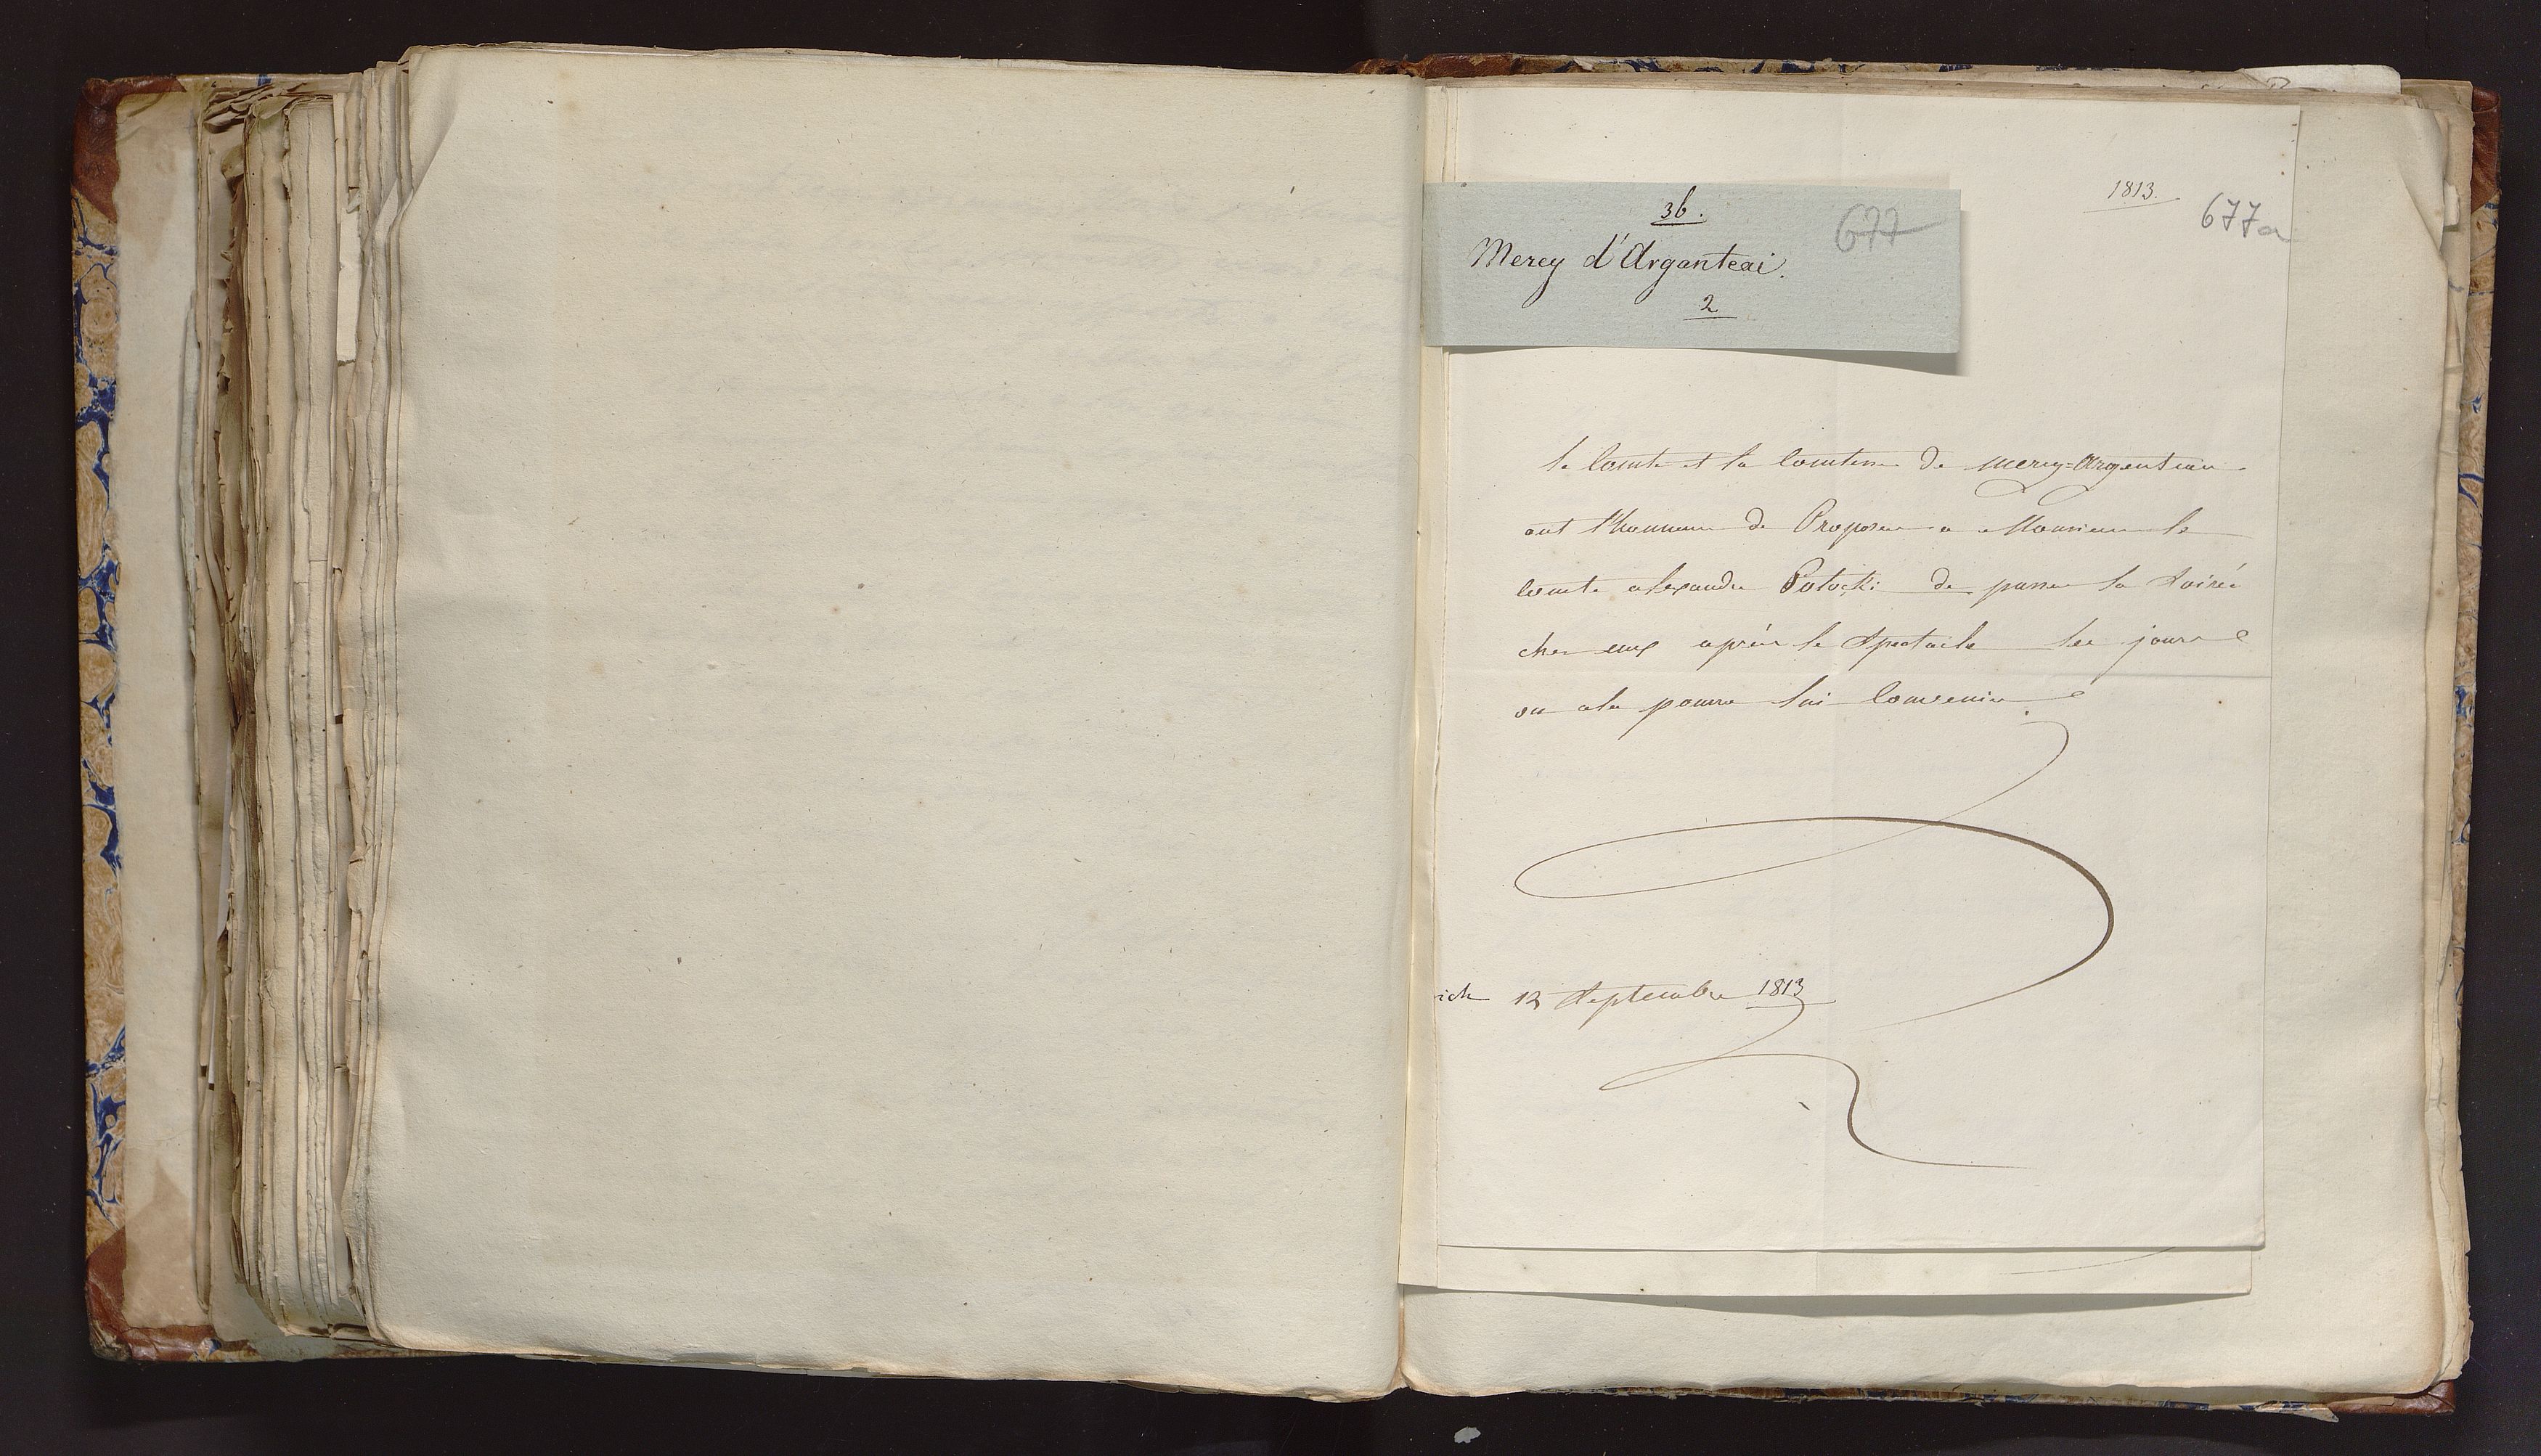 1813.
677a
36.
677
Mercy d'Arganteai.
2
le Comte et la Comtesse de Mercy=Argenteau
ont l'honneur de Proposer a Monsieur le
Comte alexandre Potocki de passer la Soirée
chez eux aprés le Spectacle les jours
ou cela pourra lui Convenir
ich 12 Septembre 1813